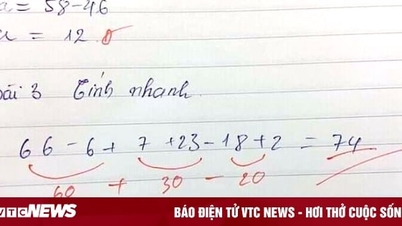 = 58 - 46
= 12
bài 3 Tính nhanh.
66 - 6 + 7 + 23 - 18 + 2 = 74
60 + 30 - 20
VTC NEWS BÁO ĐIỆN TỬ VTC NEWS - HƠI THỞ CUỘC SỐN